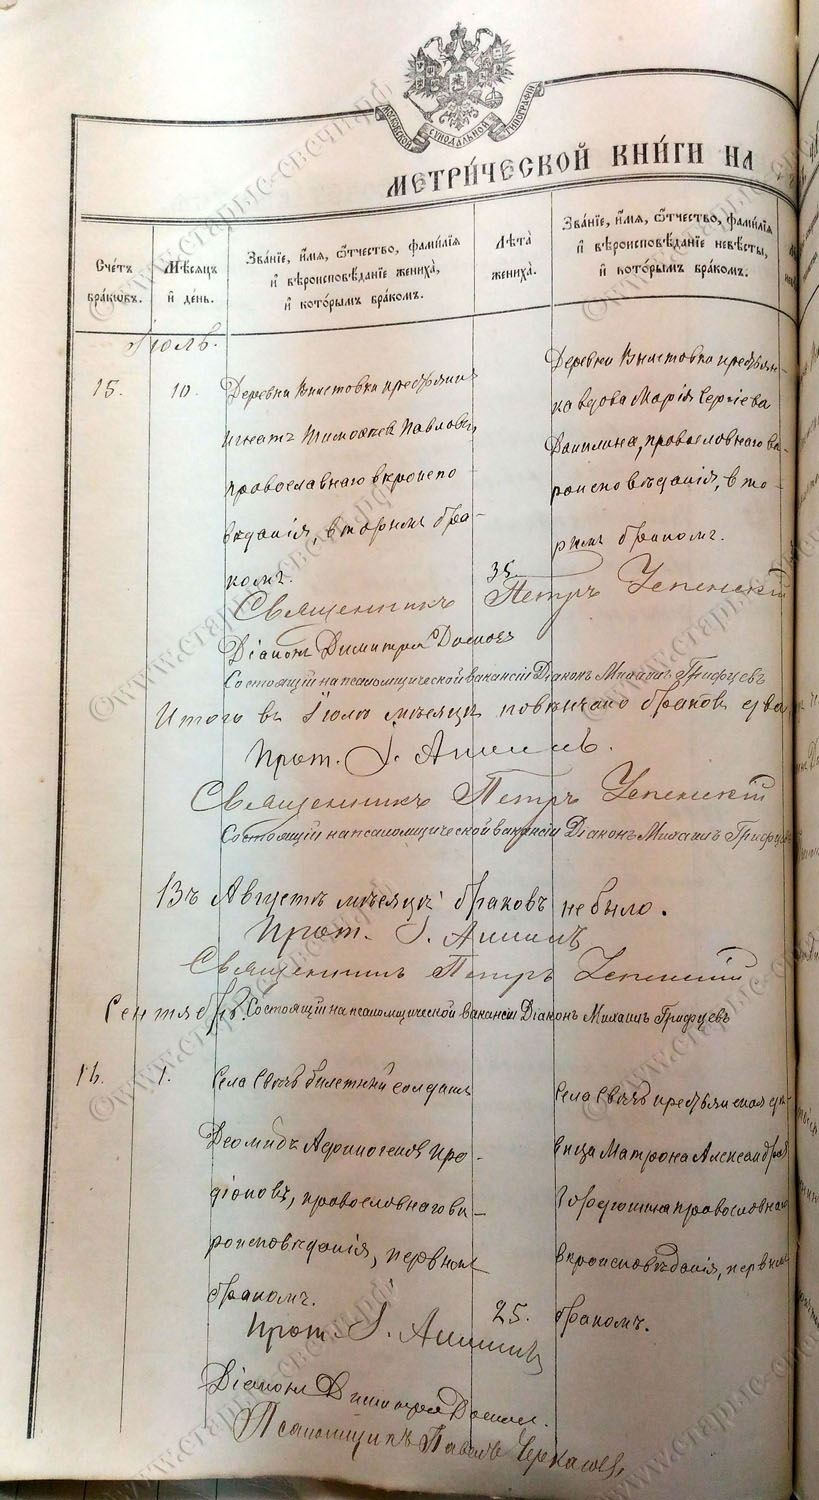 МОСКОВСКОЙ СѴНОДАЛЬНОЙ ТИПОГРАФИИ
МЕТРИ́ЧЕСКОЙ КНИ́ГИ НА
Сче́тъ бра́ковъ.
Мѣ́сяцъ и҆ де́нь.
Зва́нїе, и҆́мя, ѻ҆́тчество, фами́лїя и҆ вѣроисповѣ́данїе жениха̀, и҆ кото́рымъ бра́комъ.
Лѣ́та жениха̀.
Зва́нїе, и҆́мя, ѻ҆́тчество, фами́лїя и҆ вѣроисповѣ́данїе невѣ́сты, и҆ кото́рымъ бра́комъ.
Іюль.
15.
10.
Деревни Выставки крестьянинъ
Игнатъ Тимофеев Павловъ,
православнаго вѣроиспо-
вѣданія, вторымъ бра-
комъ.
35.
Деревни Выставки крестьян-
ка вдова Марія Сергіева
православнаго вѣ-
роисповѣданія, вто-
рымъ бракомъ.
Священникъ Петръ Успенскій
Діаконъ Димитрій
Состоящій на псаломщической вакансіи Діаконъ Михаилъ Грифцевъ
Итого въ Іюлѣ мѣсяцѣ повѣнчано браковъ два
Прот. І.
Священникъ Петръ Успенскій
Состоящій на псаломщической вакансіи Діаконъ Михаилъ Грифцевъ
Въ Августѣ мѣсяцѣ браковъ не было.
Прот. І.
Священникъ Петръ Успенскій
Сентябрь.
Состоящій на псаломщической вакансіи Діаконъ Михаилъ Грифцевъ
16.
1.
Села билетный солдатъ
Діомидъ Афиногеновъ Ро-
діоновъ, православнаго вѣ-
роисповѣданія, первымъ
бракомъ.
25.
Села крестьянская дѣ-
вица Матрона Александрова
православнаго
вѣроисповѣданія, первымъ
бракомъ.
Прот. І.
Діаконъ Димитрій
Псаломщикъ Павелъ Черкасовъ
©www.старые-свечи.рф